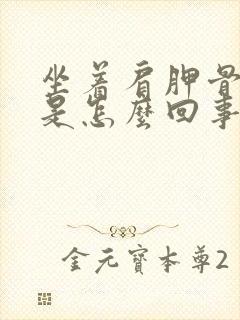 坐着肩胛骨
是怎麽回事
金元寶本尊2